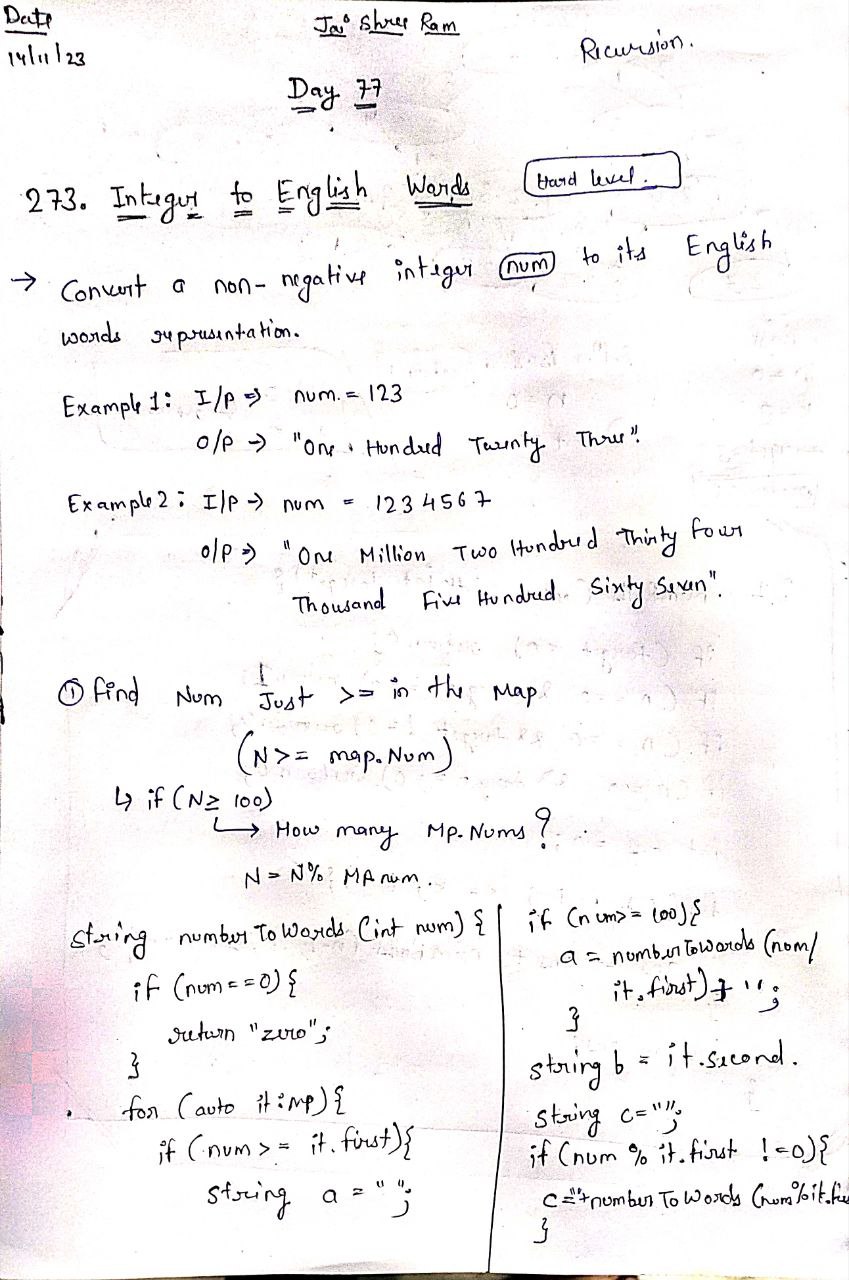 Date
14/11/23
Jai Shree Ram
Recursion.
Day 77
273. Integer to English Words
Hard level.
→ Convert a non-negative integer num to its English
words representation.
Example 1: I/P → num. = 123
O/P → "One Hundred Twenty Three".
Example 2: I/P → num = 1234567
O/P → "One Million Two Hundred Thirty four
Thousand Five Hundred Sixty Seven".
① find Num Just >= in the Map
(N >= map.Num)
↳ if (N ≥ 100)
↳ How many Mp.Nums ?
N = N% MP num.
string number To Words (int num) {
if (num == 0) {
return "zero";
}
for (auto it : mp) {
if (num >= it.first) {
string a = " ";
if (num >= 100) {
a = number Towords (num/
it.first) + " ";
}
string b = it.second.
string c = "";
if (num % it.first != 0) {
c = " " + number To Words (num%it.
}